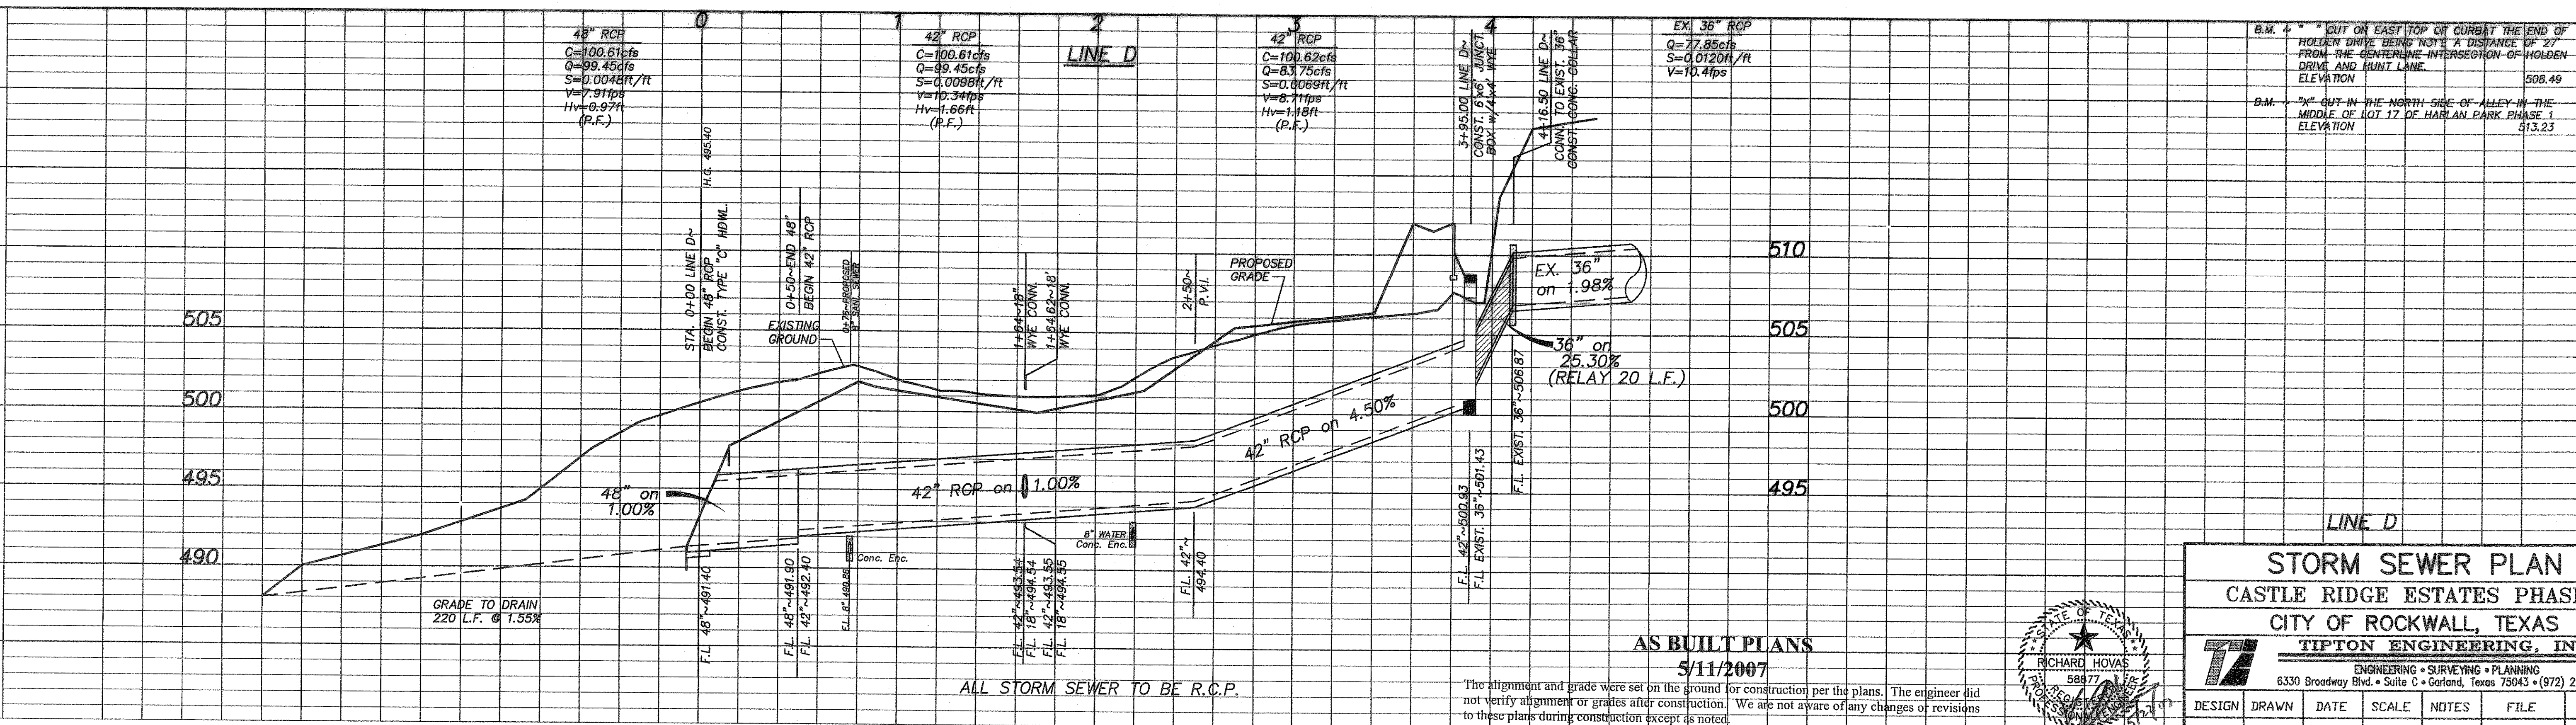 0 1 2 3 4
48" RCP
C=100.61cfs
Q=99.45cfs
S=0.0048ft/ft
V=7.91fps
Hv=0.97ft
(P.F.)
42" RCP
C=100.61cfs
Q=99.45cfs
S=0.0098ft/ft
V=10.34fps
Hv=1.66ft
(P.F.)
LINE D
42" RCP
C=100.62cfs
Q=83.75cfs
S=0.0069ft/ft
V=8.71fps
Hv=1.18ft
(P.F.)
3+95.00 LINE D~
CONST. 6'x6' JUNCT.
BOX w/4'x4' WYE
4+16.50 LINE D~
CONN. TO EXIST. 36"
CONST. CONC. COLLAR
EX. 36" RCP
Q=77.85cfs
S=0.0120ft/ft
V=10.4fps
B.M. ~ " " CUT ON EAST TOP OF CURB AT THE END OF
HOLDEN DRIVE BEING N31'E A DISTANCE OF 27'
FROM THE CENTERLINE INTERSECTION OF HOLDEN
DRIVE AND HUNT LANE.
ELEVATION 508.49
B.M. ~ "X" CUT IN THE NORTH SIDE OF ALLEY IN THE
MIDDLE OF LOT 17 OF HARLAN PARK PHASE 1
ELEVATION 513.23
H.G. 495.40
STA. 0+00 LINE D~
BEGIN 48" RCP
CONST. TYPE "C" HDWL.
0+50~END 48"
BEGIN 42" RCP
0+76~PROPOSED
8" SANI. SEWER
EXISTING
GROUND
1+64~18"
WYE CONN.
1+64.62~18'
WYE CONN.
2+50~
P.V.I.
PROPOSED
GRADE
510
EX. 36"
on 1.98%
505
505
36" on
25.30%
(RELAY 20 L.F.)
500
500
42" RCP on 4.50%
F.L. EXIST. 36"~506.87
495
495
48" on
1.00%
42" RCP on 1.00%
F.L. 42"~500.93
F.L. EXIST. 36"~501.43
490
8" WATER
Conc. Enc.
Conc. Enc.
GRADE TO DRAIN
220 L.F. @ 1.55%
F.L. 48"~491.40
F.L. 48"~491.90
F.L. 42"~492.40
F.L. 8" 490.86
F.L. 42"~493.54
F.L. 18"~494.54
F.L. 42"~493.55
F.L. 18"~494.55
F.L. 42"~
494.40
ALL STORM SEWER TO BE R.C.P.
AS BUILT PLANS
5/11/2007
The alignment and grade were set on the ground for construction per the plans. The engineer did
not verify alignment or grades after construction. We are not aware of any changes or revisions
to these plans during construction except as noted.
STATE OF TEXAS
RICHARD HOVAS
58877
PROFESSIONAL ENGINEER
LINE D
STORM SEWER PLAN
CASTLE RIDGE ESTATES PHASE
CITY OF ROCKWALL, TEXAS
TIPTON ENGINEERING, IN
ENGINEERING • SURVEYING • PLANNING
6330 Broadway Blvd. • Suite C • Garland, Texas 75043 • (972) 2
DESIGN DRAWN DATE SCALE NOTES FILE